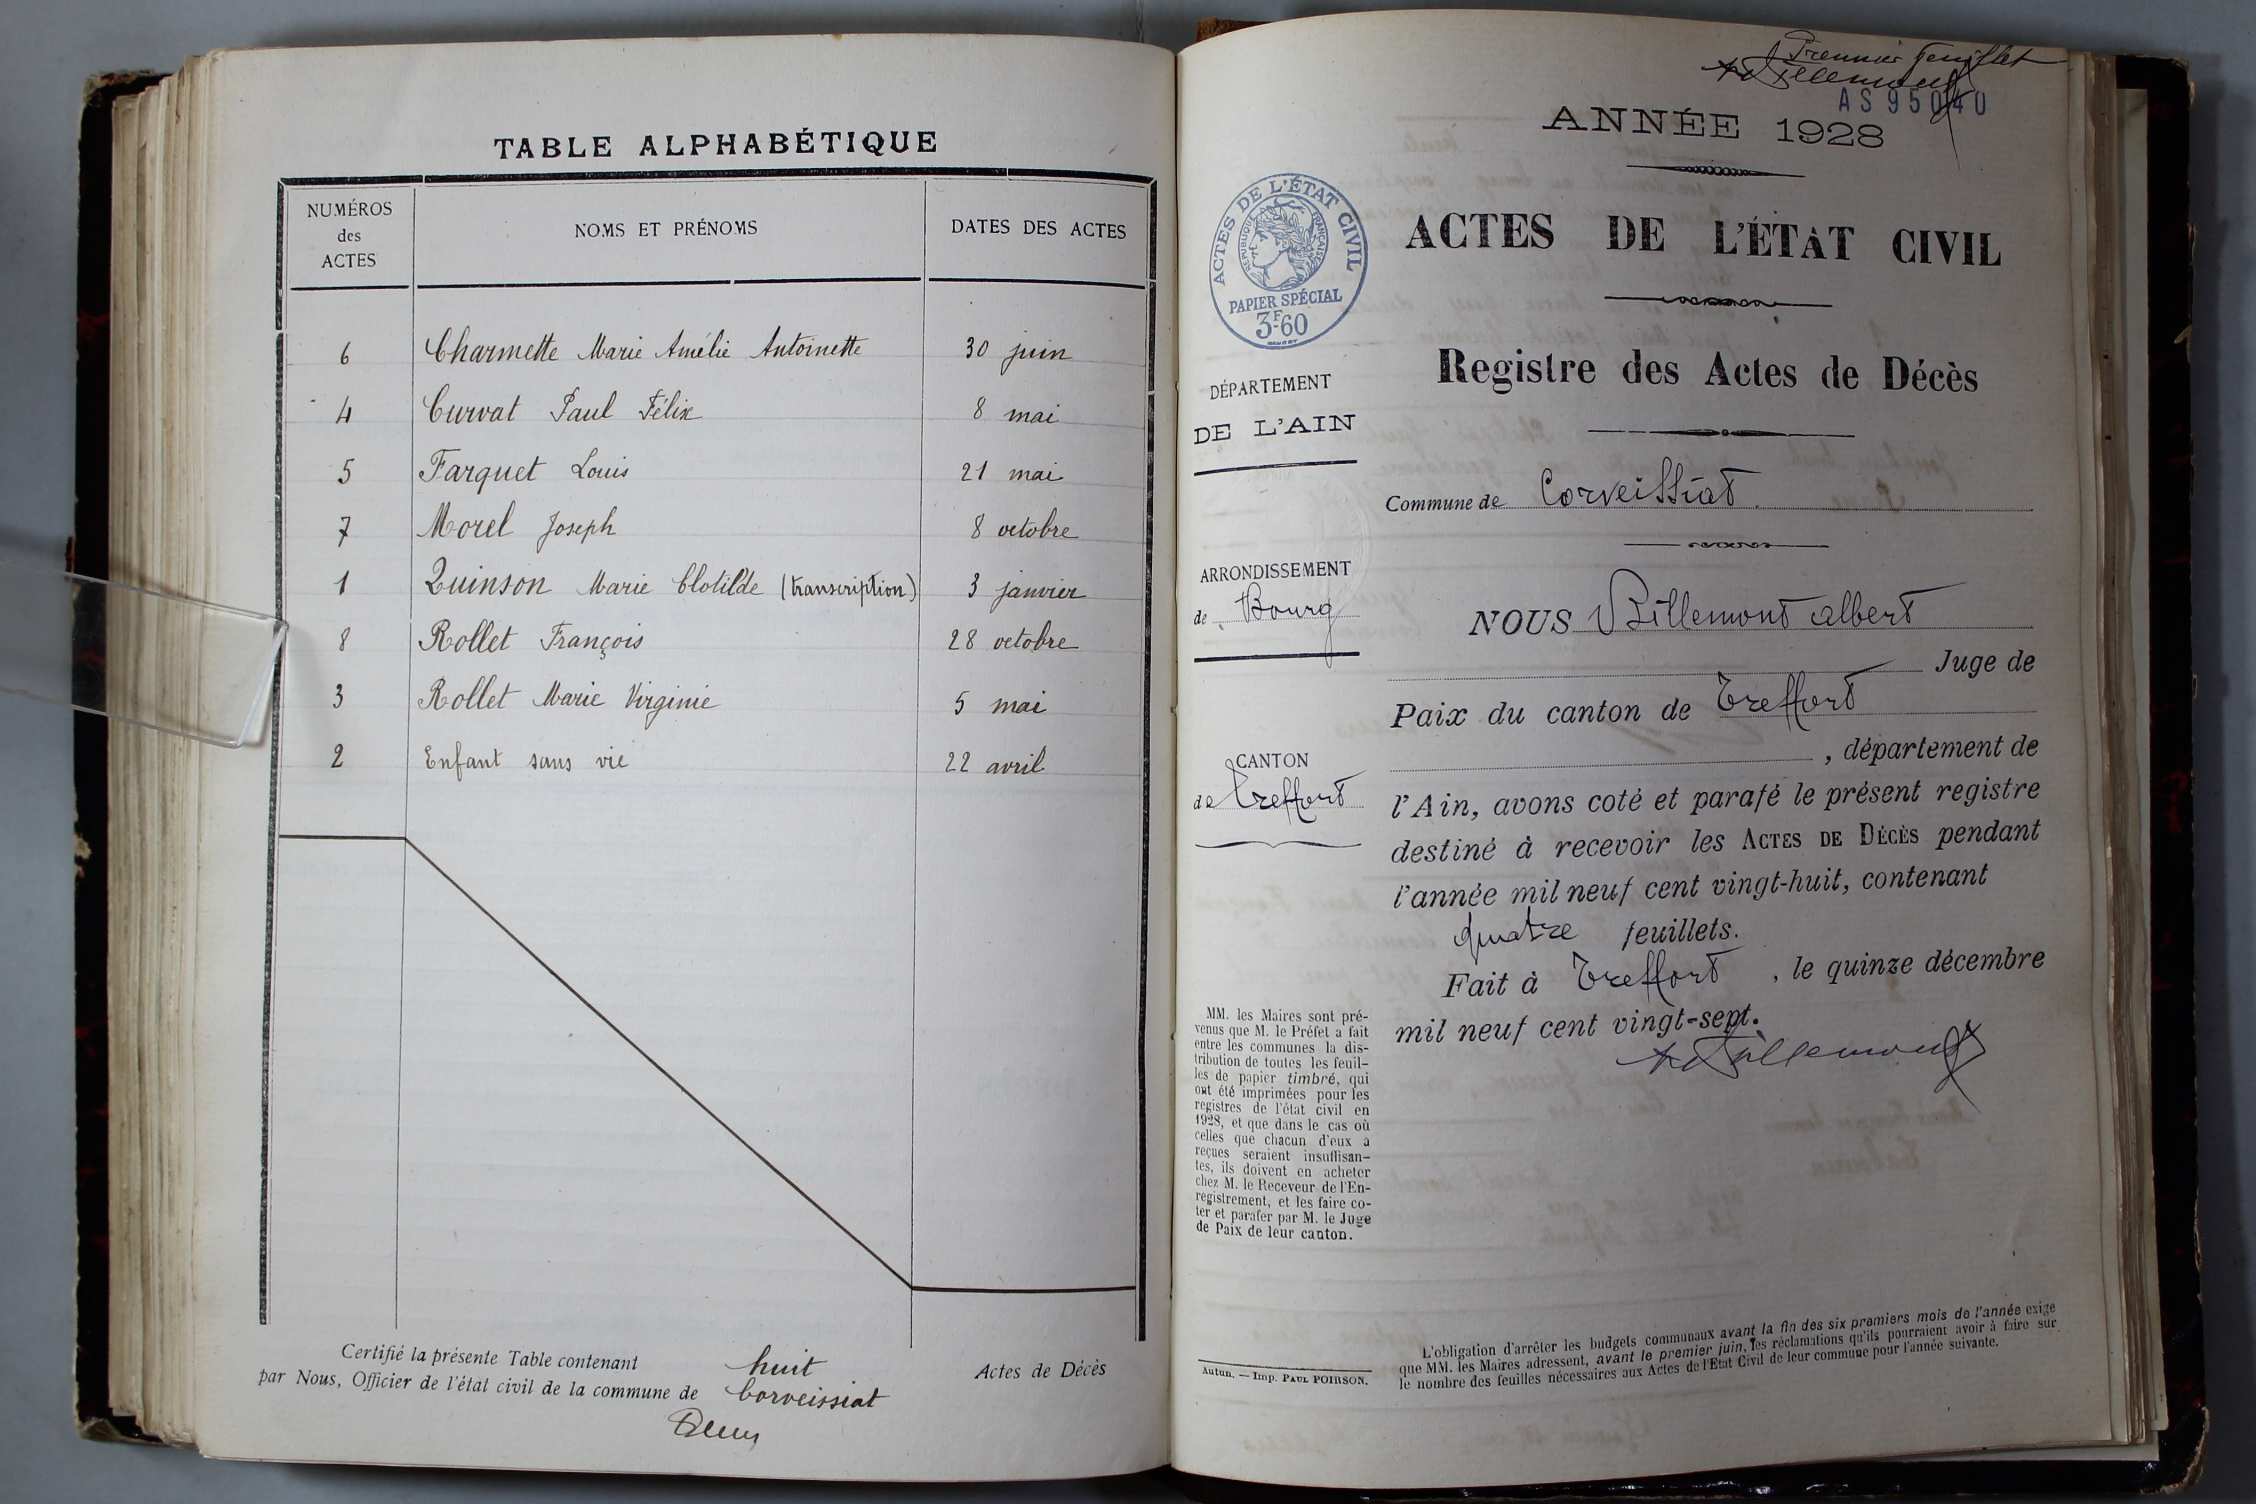 TABLE ALPHABÉTIQUE
NUMÉROS des ACTES NOMS ET PRÉNOMS DATES DES ACTES
6 Charmette Marie Amélie Antoinette 30 juin
4 Curvat Paul Félix 8 mai
5 Farquet Louis 21 mai
7 Morel Joseph 8 octobre
1 Quinson Marie Clotilde (transcription) 3 janvier
8 Rollet François 28 octobre
3 Rollet Marie Virginie 5 mai
2 Enfant sans vie 22 avril
Certifié la présente Table contenant huit Actes de Décès
par Nous, Officier de l'état civil de la commune de Corveissiat
Premier feuillet
AS 95040
ANNÉE 1928
ACTES DE L'ÉTAT CIVIL
RÉPUBLIQUE FRANÇAISE
PAPIER SPÉCIAL
3F60
ACTES DE L'ÉTAT CIVIL
Registre des Actes de Décès
DÉPARTEMENT
DE L'AIN
Commune de Corveissiat
ARRONDISSEMENT
de Bourg
CANTON
de Treffort
NOUS Billemont Albert
Juge de
Paix du canton de Treffort
, département de
l'Ain, avons coté et parafé le présent registre
destiné à recevoir les ACTES DE DÉCÈS pendant
l'année mil neuf cent vingt-huit, contenant
quatre feuillets.
Fait à Treffort, le quinze décembre
mil neuf cent vingt-sept.
MM. les Maires sont pré-
venus que M. le Préfet a fait
entre les communes la dis-
tribution de toutes les feuil-
les de papier timbré, qui
ont été imprimées pour les
registres de l'état civil en
1928, et que dans le cas où
celles que chacun d'eux a
reçues seraient insuffisan-
tes, ils doivent en acheter
chez M. le Receveur de l'En-
registrement, et les faire co-
ter et parafer par M. le Juge
de Paix de leur canton.
Autun. — Imp. PAUL POIRSON.
L'obligation d'arrêter les budgets communaux avant la fin des six premiers mois de l'année exige
que MM. les Maires adressent, avant le premier juin, les réclamations qu'ils pourraient avoir à faire sur
le nombre des feuilles nécessaires aux Actes de l'Etat Civil de leur commune pour l'année suivante.